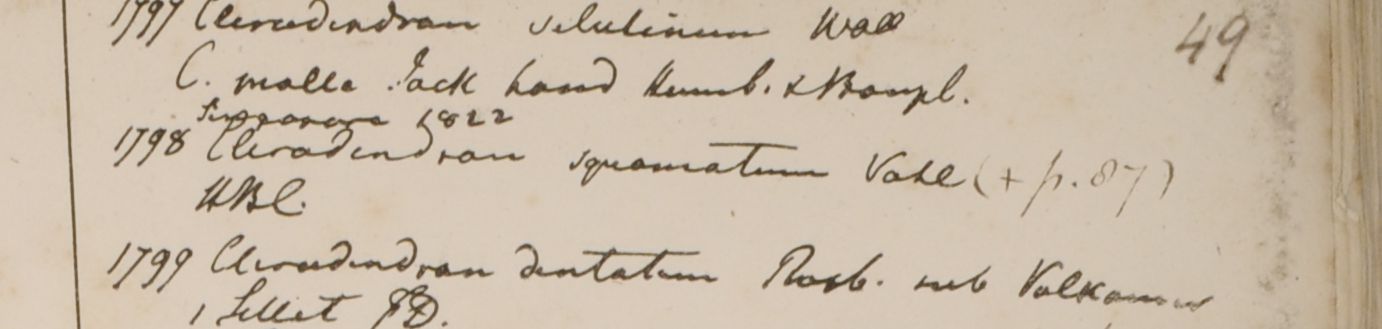 1797 Clerodendron velutinum Wall 49
C. molle Jack haud Humb. & Bonpl.
Singapore 1822
1798 Clerodendron squamatum Vahl (+ p. 87)
HBC.
1799 Clerodendron dentatum Roxb. sub Volkameria
1 Sillet FD.